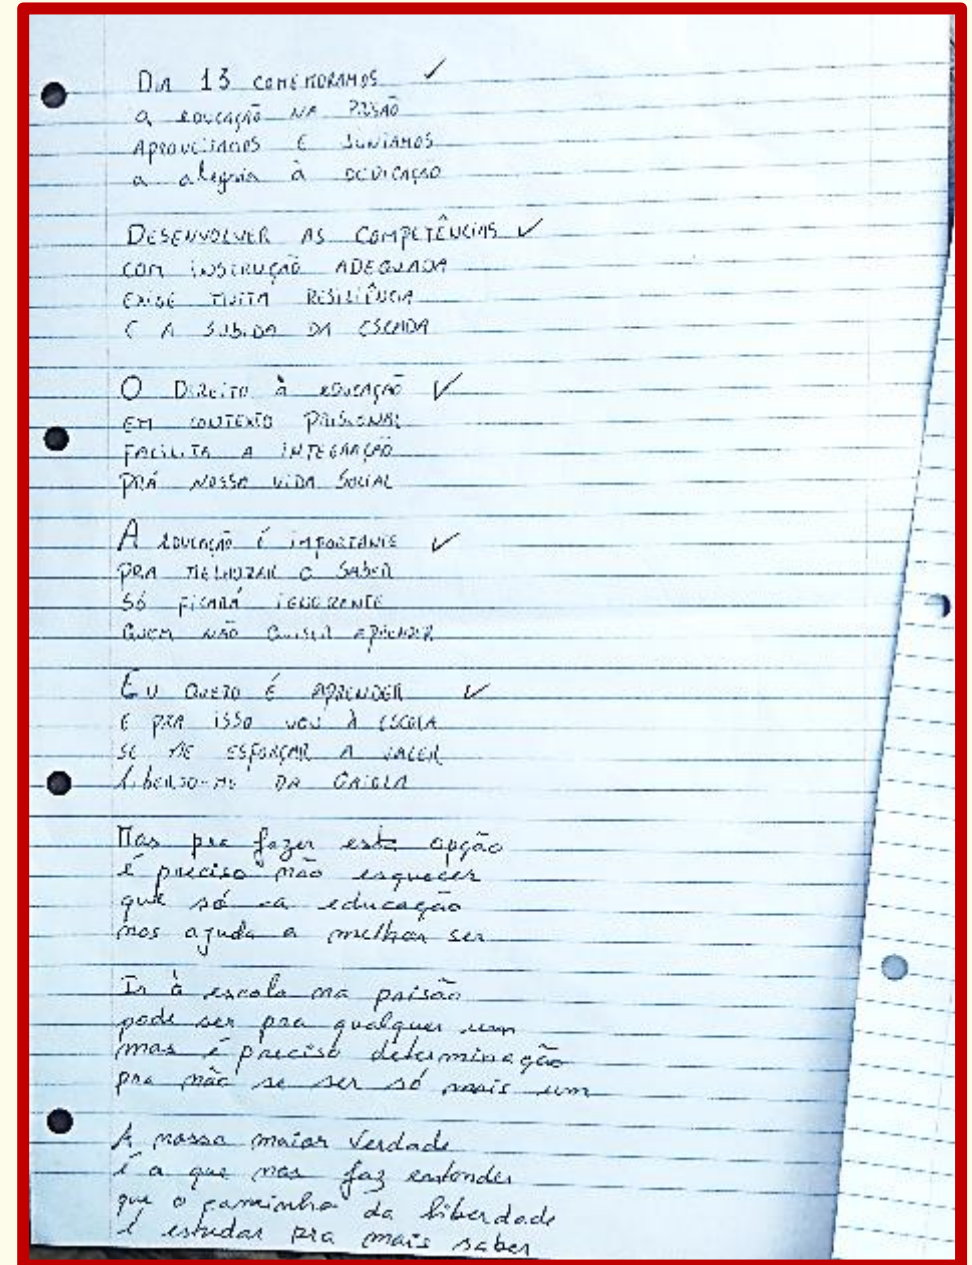 DIA 13 COMEMORAMOS ✓
a EDUCAÇÃO NA PRISÃO
APROVEITAMOS E JUNTAMOS
a alegria à DEDICAÇÃO
DESENVOLVER AS COMPETÊNCIAS ✓
COM INSTRUÇÃO ADEQUADA
EXIGE MUITA RESILIÊNCIA
E A SUBIDA DA ESCADA
O DIREITO à EDUCAÇÃO ✓
EM CONTEXTO PRISIONAL
FACILITA A INTEGRAÇÃO
PRÁ NOSSA VIDA SOCIAL
A EDUCAÇÃO É IMPORTANTE ✓
PRA MELHORAR O SABER
SÓ FICARÁ IGNORENTE
QUEM NÃO QUISER APRENDER
EU QUERO É APRENDER ✓
E PRA ISSO VOU À ESCOLA
SE ME ESFORÇAR A VALER
LIBERTO-ME DA GAIOLA
Mas pra fazer esta opção
é preciso não esquecer
que só a educação
nos ajuda a melhor ser
Ir à escola na prisão
pode ser pra qualquer um
mas é preciso determinação
pra não se ser só mais um
A nossa maior verdade
é a que nos faz entender
que o caminho da liberdade
é estudar pra mais saber